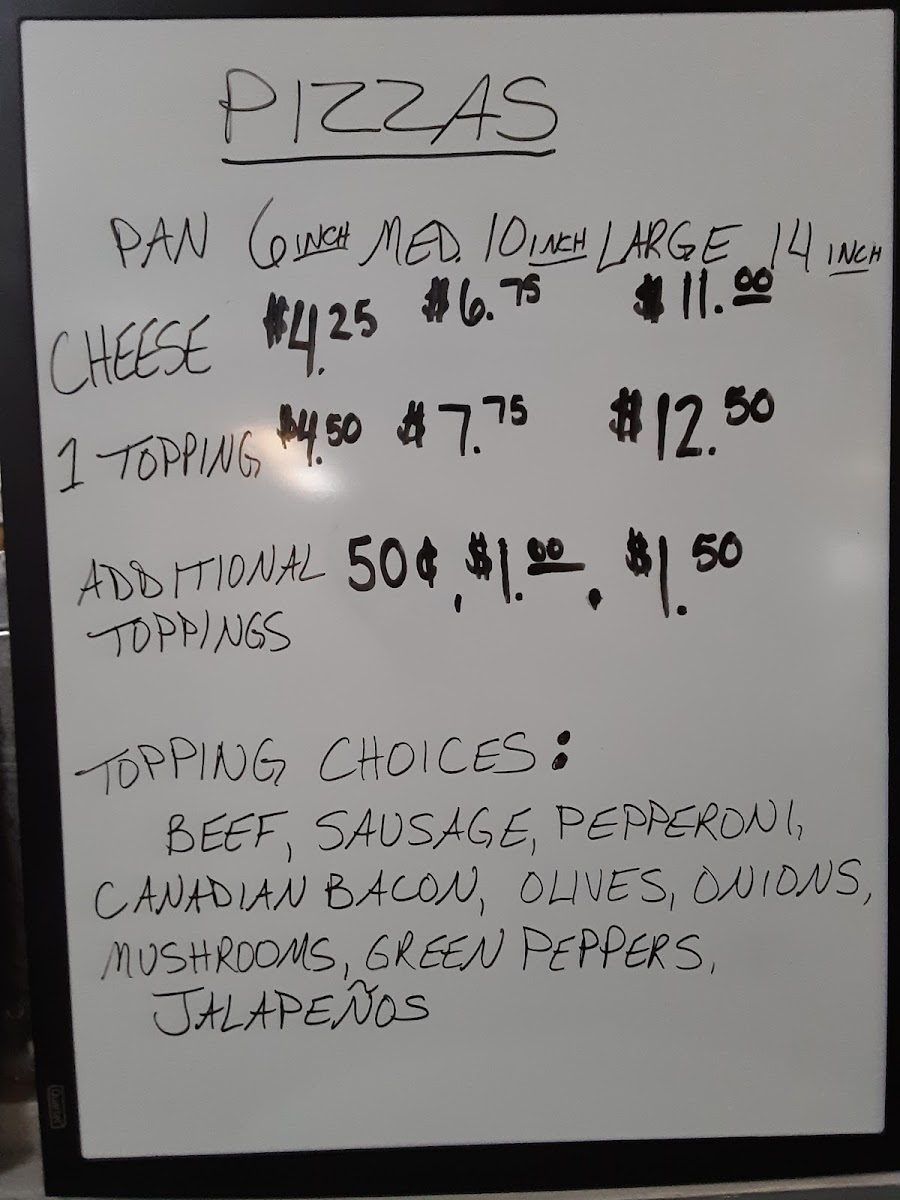 PIZZAS
PAN 6 INCH MED. 10 INCH LARGE 14 INCH
CHEESE $4.25 $6.75 $11.00
1 TOPPING $4.50 $7.75 $12.50
ADDITIONAL 50¢, $1.00, $1.50
TOPPINGS
TOPPING CHOICES:
BEEF, SAUSAGE, PEPPERONI,
CANADIAN BACON, OLIVES, ONIONS,
MUSHROOMS, GREEN PEPPERS,
JALAPEÑOS
Quartet